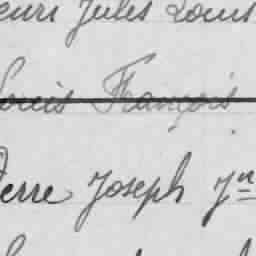 enri Jules Louis
Louis François
ierre Joseph Jn